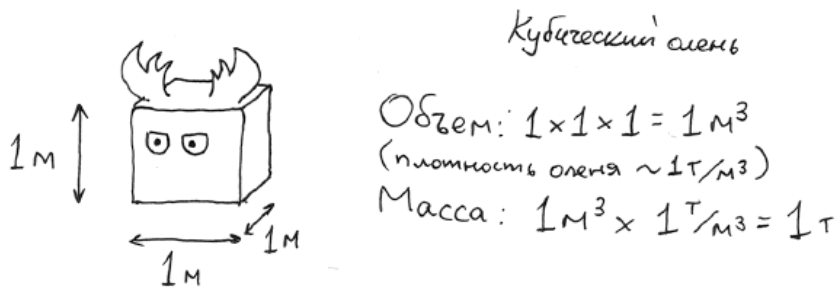 Кубический олень
Объем: 1×1×1 = 1 м³
(плотность оленя ~1т/м³)
Масса: 1м³ × 1т/м³ = 1т
1м
1м
1м